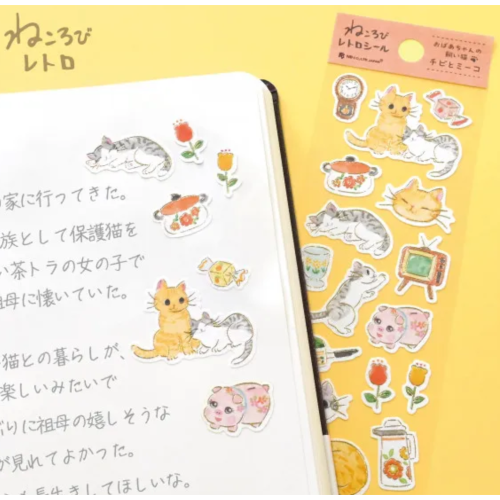 ねころび
レトロ
ねころび
レトロシール
おばあちゃんの
飼い猫
チビとミーコ
の家に行ってきた。
族として保護猫を
い茶トラの女の子で
祖母に懐いていた。
猫との暮らしが、
楽しいみたいで
ぶりに祖母の嬉しそうな
が見れてよかった。
長生きしてほしいな。